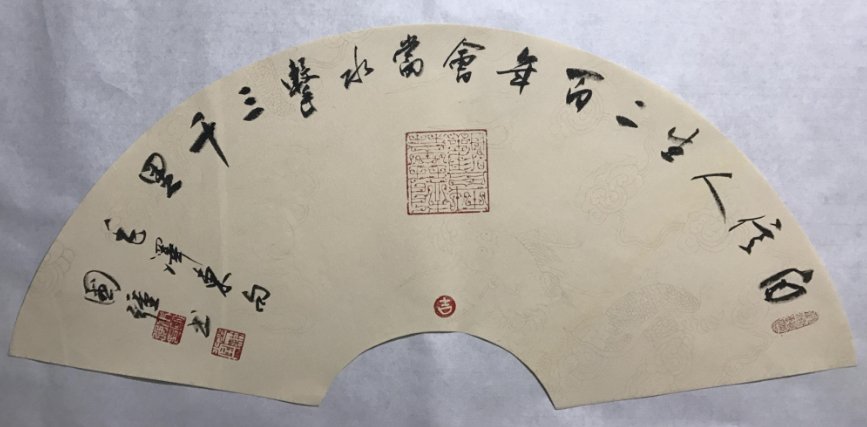 自信人生二百年會當水擊三千里
毛澤東句
國維書
吉